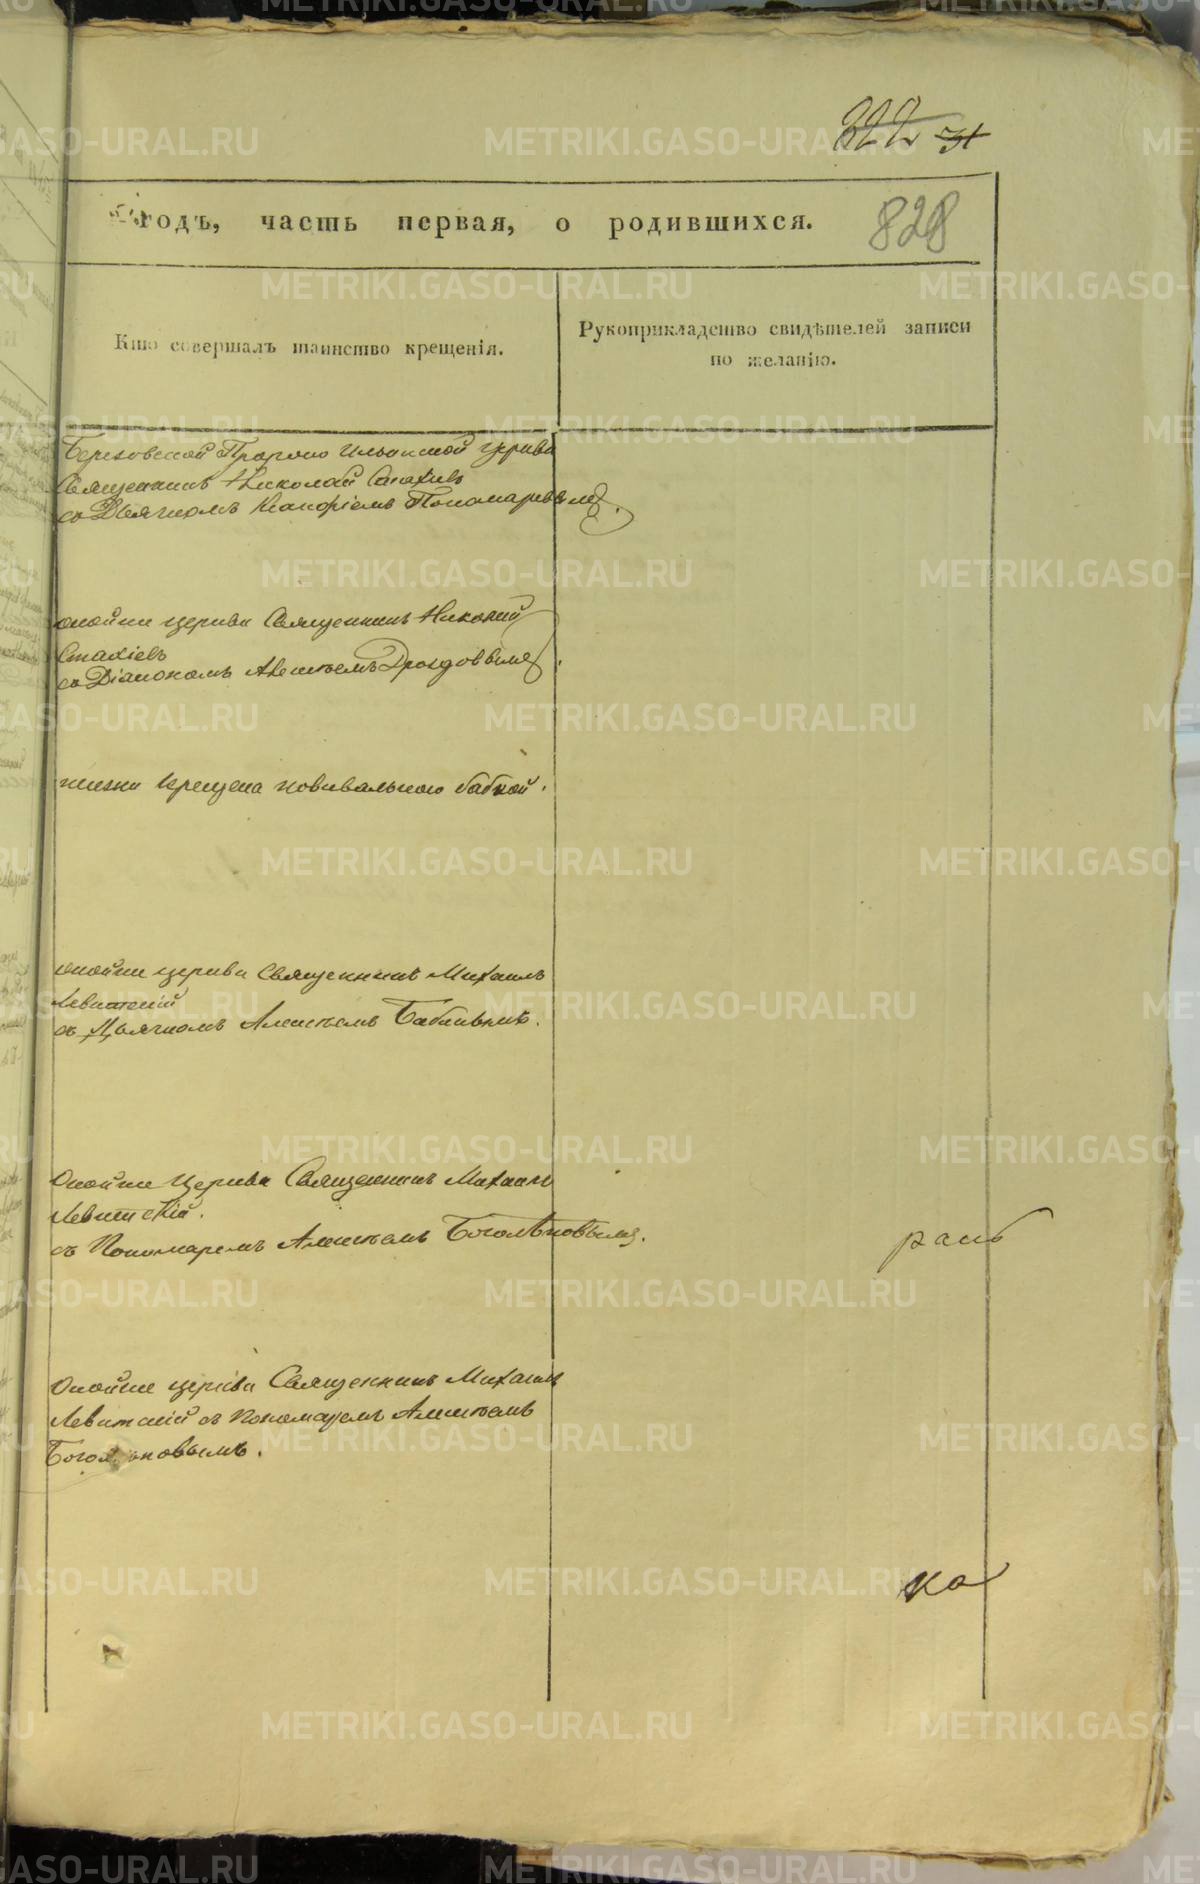 322 31
годъ, часть первая, о родившихся. 828
Кто совершалъ таинство крещенія.
Рукоприкладство свидѣтелей записи
по желанію.
Березовской Пророко Ильинской церкви
Священникъ Николай Стахіевъ
съ Дьячкомъ Пономаревымъ.
оной же церкви Священникъ Николай
Стахіевъ
съ Діакономъ Алексѣемъ Дроздовымъ.
крещена повивальною бабкой.
оной же церкви Священникъ Михаилъ
Левитскій
съ Дьячкомъ Алексѣемъ Бабинымъ.
Оной же Церкви Священникъ Михаилъ
Левитскій.
съ Пономаремъ Алексѣемъ Боголѣповымъ.
рскъ
Оной же церкви Священникъ Михаилъ
Левитскій съ Пономаремъ Алексѣемъ
ка
METRIKI.GASO-URAL.RU